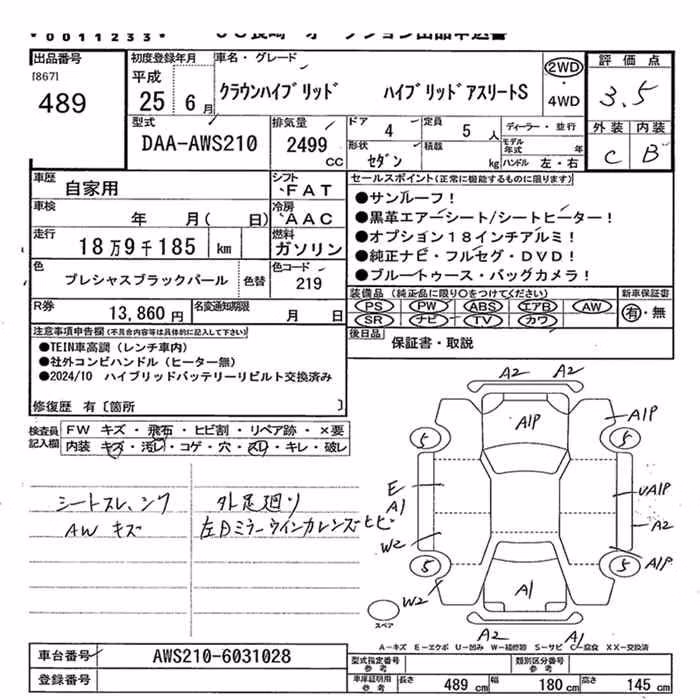 * 0 0 1 1 2 3 3 *
出品番号
[867]
489
初度登録年月
平成
25 年 6 月
車名・グレード
クラウンハイブリッド ハイブリッドアスリートS
2WD
・
4WD
評価点
3.5
外装 内装
C B
型式
DAA-AWS210
排気量
2499
CC
ドア
4
定員
5 人
形状
セダン
積載
kg
ディーラー・並行
モデル年式 年
ハンドル 左・右
車歴
自家用
シフト
FAT
車検
年 月( 日)
冷房
AAC
走行
18万9千185 km
燃料
ガソリン
色
プレシャスブラックパール
色替
色コード
219
R券
13,860 円
名変通知期限
月 日
セールスポイント(正常に機能するものに限ります)
●サンルーフ!
●黒革エアーシート/シートヒーター!
●オプション18インチアルミ!
●純正ナビ・フルセグ・DVD!
●ブルートゥース・バックカメラ!
装備品(純正品に限り○をつけてください)
PS PW ABS エアB AW
SR ナビ TV カワ
新車保証書
有・無
後日品
保証書・取説
注意事項申告欄(不具合内容等は具体的に記入して下さい)
●TEIN車高調(レンチ車内)
●社外コンビハンドル(ヒーター無)
●2024/10 ハイブリッドバッテリーリビルト交換済み
修復歴 有〔箇所 〕
検査員記入欄
FW キズ・飛石・ヒビ割・リペア跡・×要
内装 キズ・汚レ・コゲ・穴・スレ・キレ・破レ
シートスレ、シワ
AW キズ
外足廻り
左Dミラーウインカレンズヒビ
A2 A2
A1P
A1P
5 5
E
A1
UA1P
A2
W2
5 5
A1P
W2
A1
A2 A1
スペア
A-キズ E-エクボ U-凹み W-補修跡 S-サビ C-腐食 XX-交換済
車台番号
AWS210-6031028
登録番号
型式指定番号
参考
類別区分番号
参考
車庫証明用
参考
長さ 489 cm
幅 180 cm
高さ 145 cm